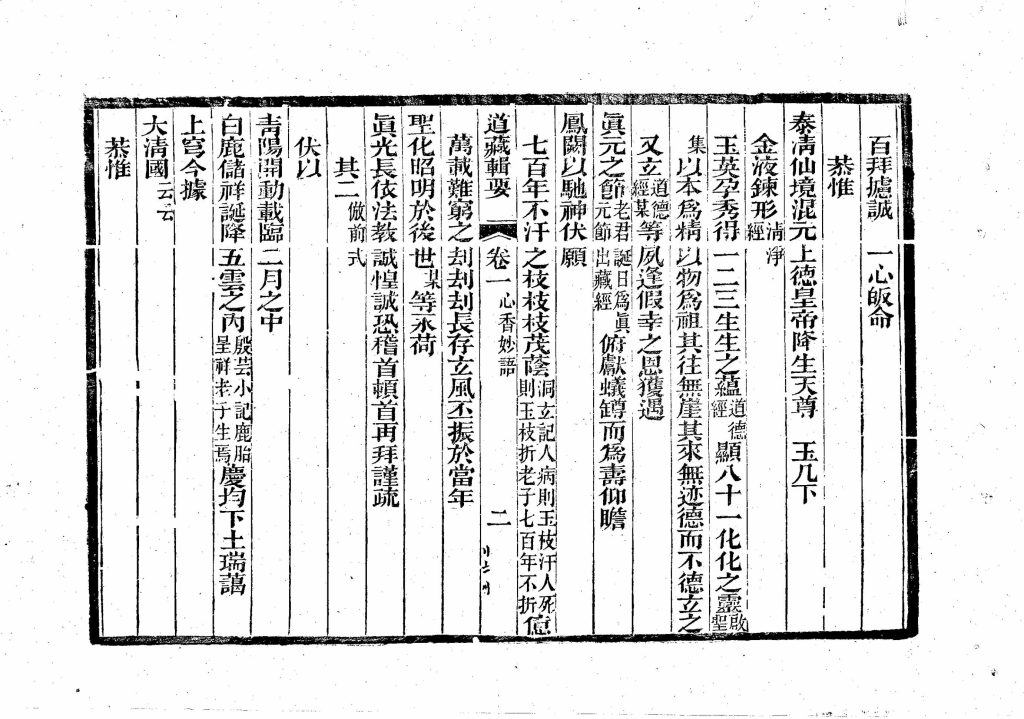 百拜攄誠　一心皈命
恭惟
泰淸仙境混元上德皇帝降生天尊　玉几下
金液鍊形淸淨經
玉英孕秀得一二三生生之蘊道德經顯八十一化化之靈啟聖
集以本爲精以物爲祖其往無崖其來無迹德而不德玄之
又玄道德經某等夙逢假幸之恩獲遇
眞元之節老君誕日爲眞元節出藏經俯獻蟻罇而爲壽仰瞻
鳳闕以馳神伏願
七百年不汗之枝枝枝茂蔭洞玄記人病則玉枝汗人死則玉枝折老子七百年不汗折億
道藏輯要　卷一心香妙語　二
萬載難窮之刦刦刦長存玄風丕振於當年
聖化昭明於後世某等永荷
眞光長依法教誠惶誠恐稽首頓首再拜謹疏
其二倣前式
伏以
靑陽開動載臨二月之中
白鹿儲祥誕降五雲之內殷芸小記鹿胎呈祥老子生焉慶均下土瑞藹
上穹今據
大淸國云云
恭惟